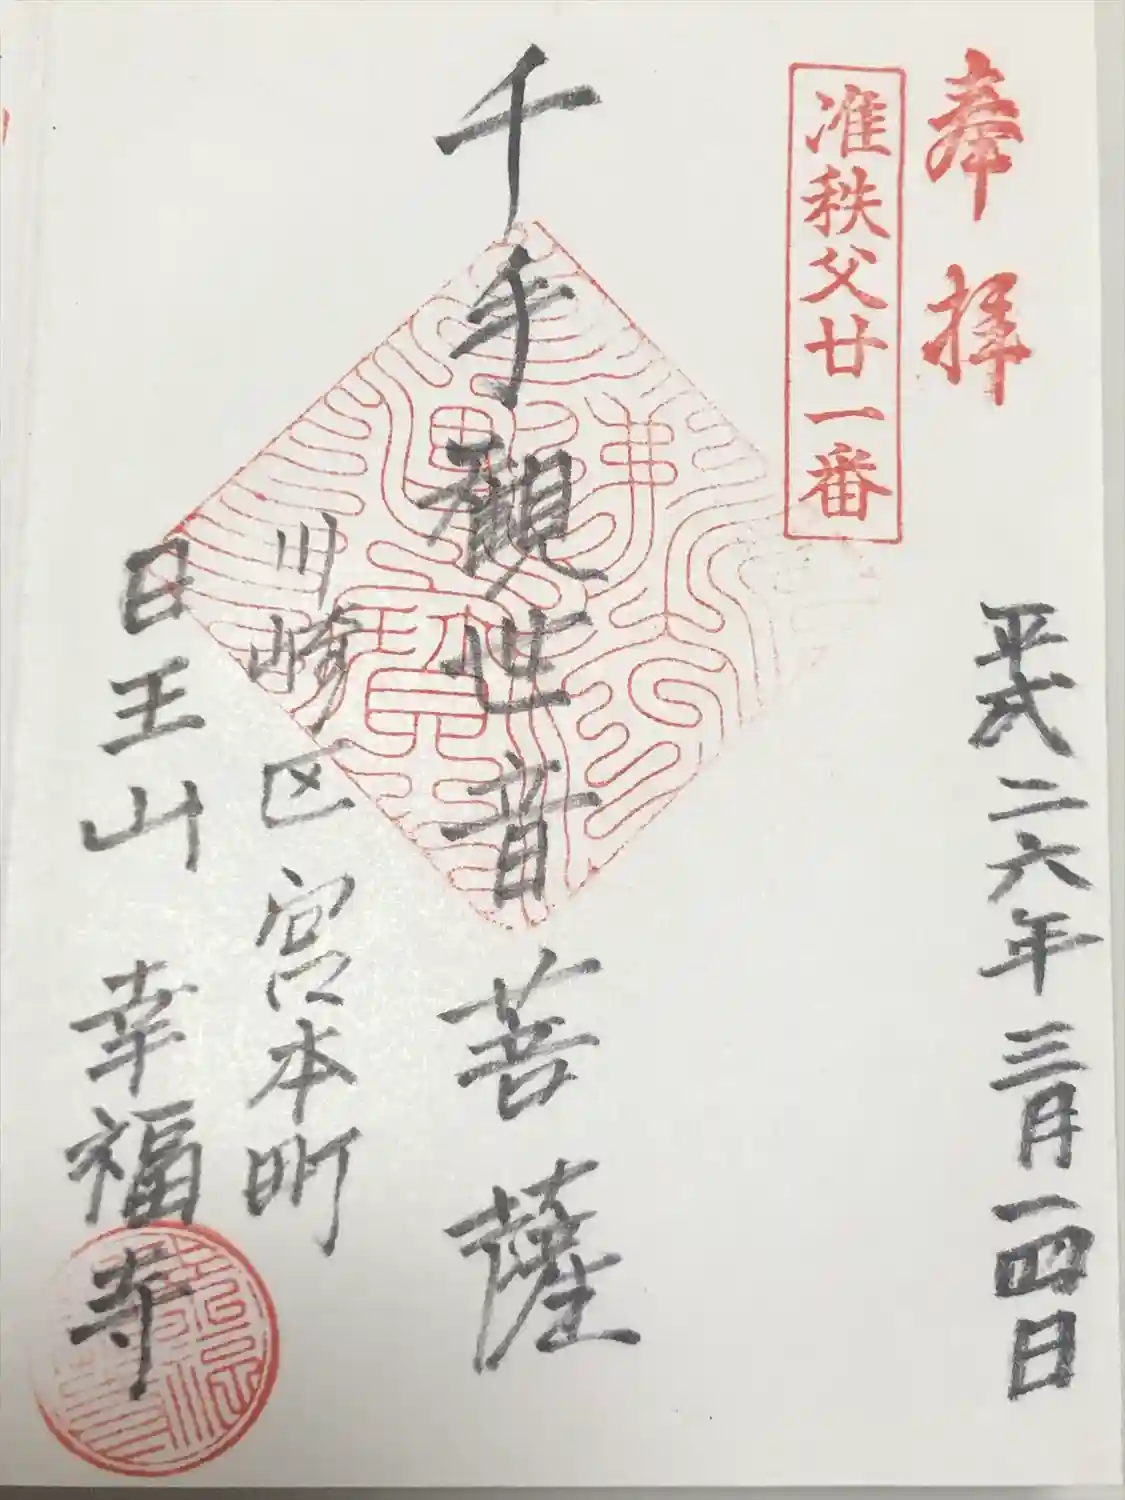 奉拝
平成二六年三月一四日
准秩父廿一番
千手観世音菩薩
川崎区宮本町
日王山 幸福寺